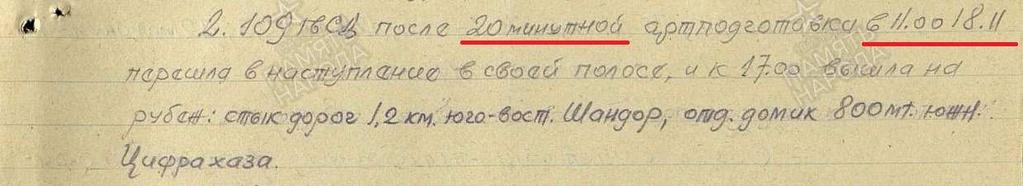 2. 109 гвСД после 20 минутной артподготовки в 11.00 18.11
перешла в наступление в своей полосе, и к 17.00 вышла на
рубеж: стык дорог 1,2 км. юго-вост. Шандор, отд. домик 800 мт. южн.
Цифрахаза.